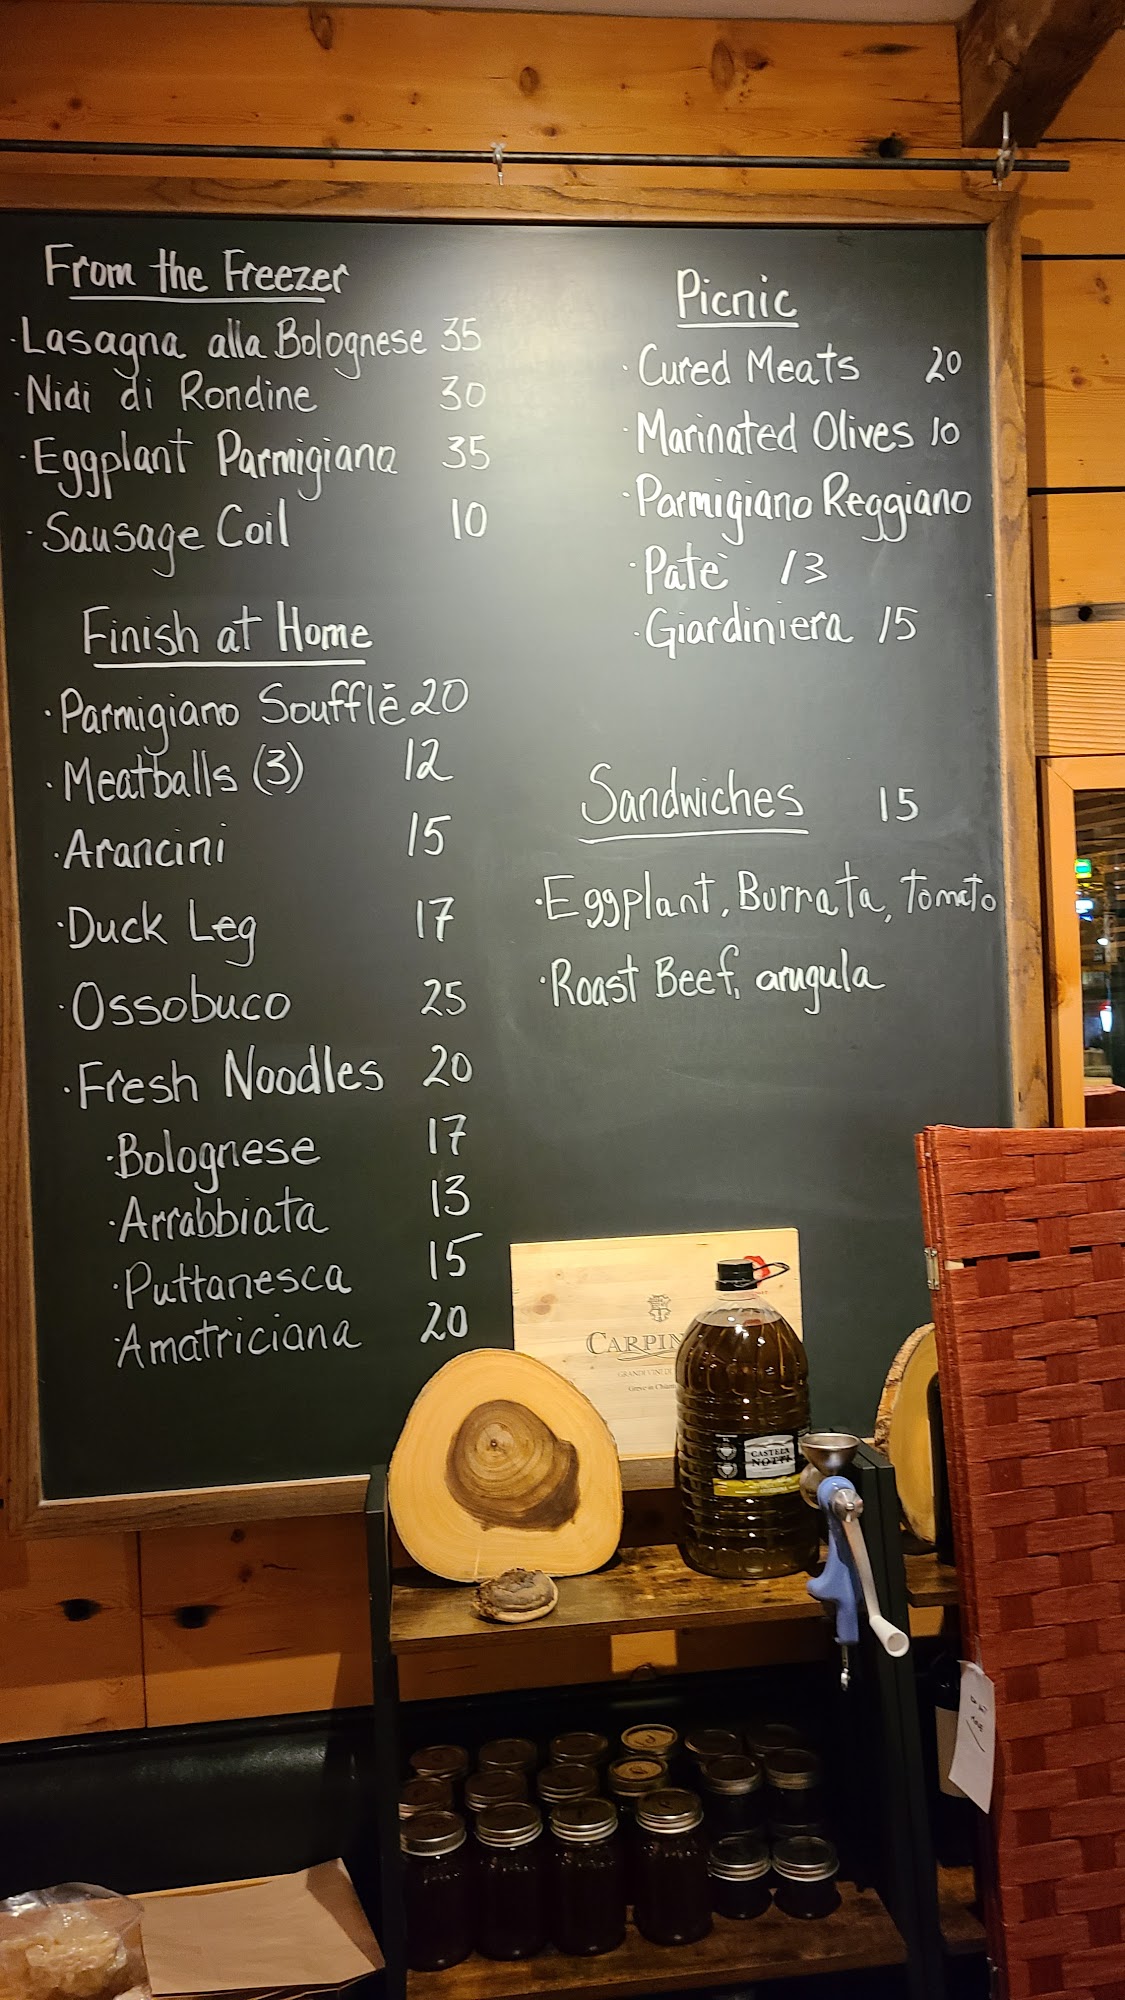 From the Freezer
·Lasagna alla Bolognese 35
·Nidi di Rondine 30
·Eggplant Parmigiana 35
·Sausage Coil 10
Finish at Home
·Parmigiano Soufflé 20
·Meatballs (3) 12
·Arancini 15
·Duck Leg 17
·Ossobuco 25
·Fresh Noodles 20
·Bolognese 17
·Arrabbiata 13
·Puttanesca 15
·Amatriciana 20
Picnic
·Cured Meats 20
·Marinated Olives 10
·Parmigiano Reggiano
·Patè 13
·Giardiniera 15
Sandwiches 15
·Eggplant, Burrata, tomato
·Roast Beef, arugula
CARPIN
GRANDI VINI DI
Greve in Chianti
CASTELL
NOTTI